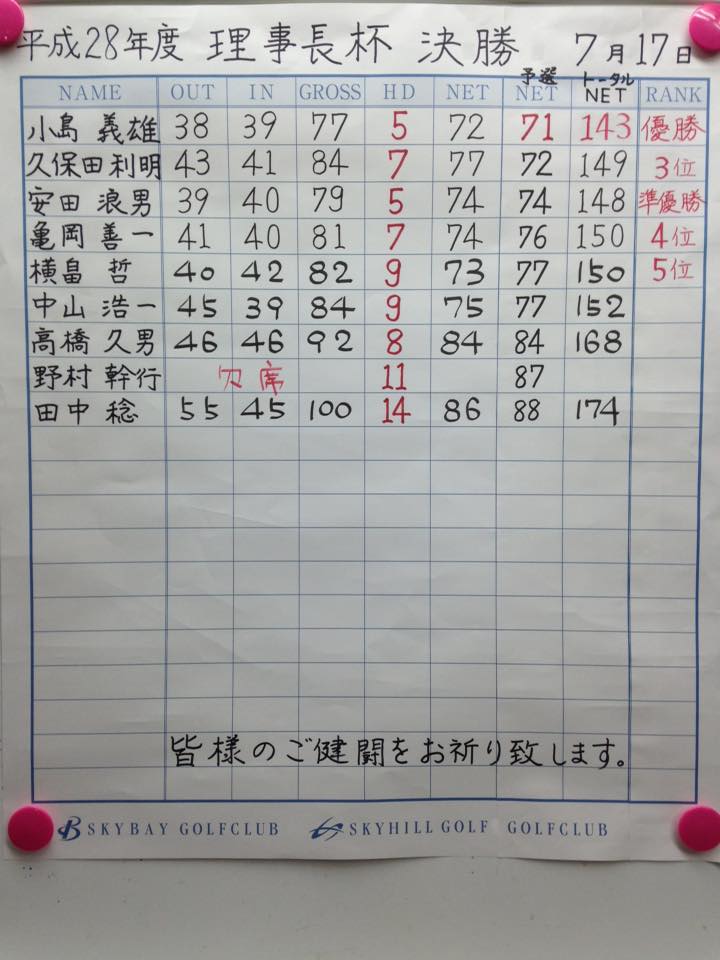 平成28年度 理事長杯 決勝 7月17日
NAME OUT IN GROSS HD NET 予選 NET トータル NET RANK
小島 義雄 38 39 77 5 72 71 143 優勝
久保田利明 43 41 84 7 77 72 149 3位
安田 浪男 39 40 79 5 74 74 148 準優勝
亀岡 善一 41 40 81 7 74 76 150 4位
横畠 哲 40 42 82 9 73 77 150 5位
中山 浩一 45 39 84 9 75 77 152
高橋 久男 46 46 92 8 84 84 168
野村 幹行 欠席 11 87
田中 稔 55 45 100 14 86 88 174
皆様のご健闘をお祈り致します。
SKYBAY GOLFCLUB SKYHILL GOLF GOLFCLUB